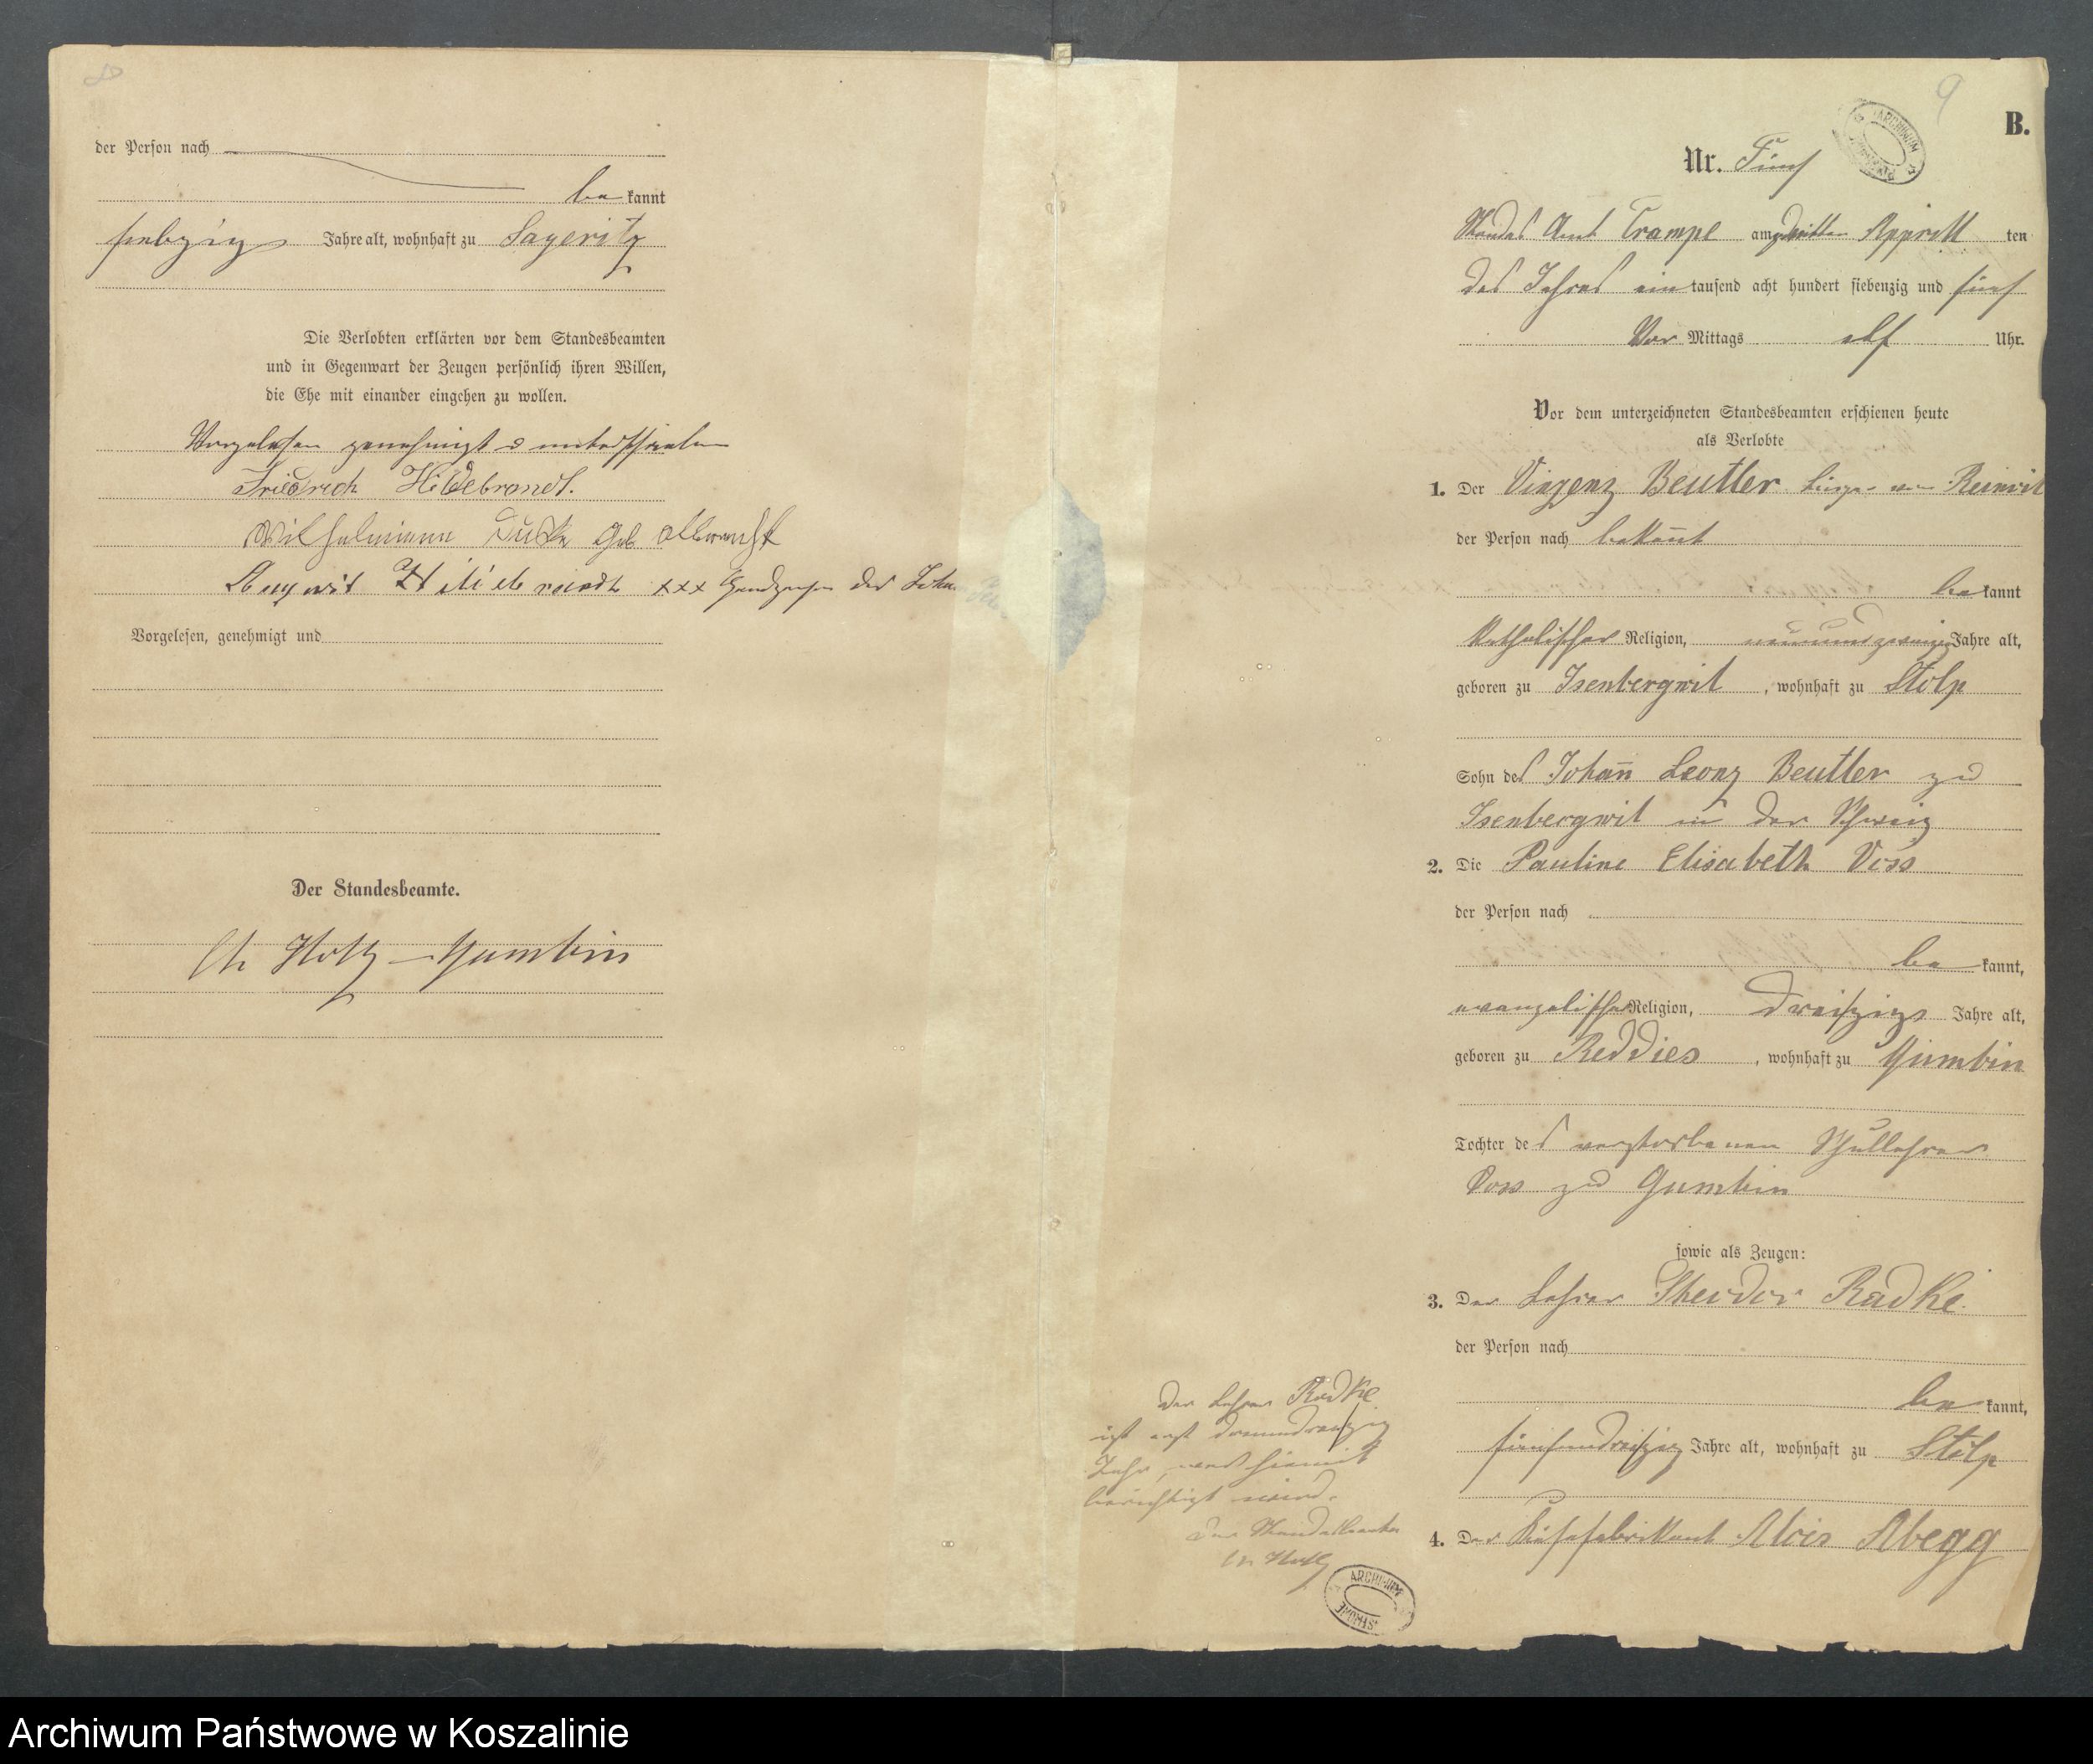 8
der Person nach
be kannt
siebzig Jahre alt, wohnhaft zu Sageritz
Die Verlobten erklärten vor dem Standesbeamten
und in Gegenwart der Zeugen persönlich ihren Willen,
die Ehe mit einander eingehen zu wollen.
Vorgelesen genehmigt u unterschrieben
Friedrich Hildebrandt.
Wilhelmine geb Albrecht
August Hildebrandt xxx Handzeichen des
Vorgelesen, genehmigt und
Der Standesbeamte.
Holtz – Gumbin
9
B.
ARCHIWUM
Nr. Fünf
Standes Amt Trampe am dritten Apprill ten
des Jahres ein tausend acht hundert siebenzig und fünf
Vor Mittags elf Uhr.
Vor dem unterzeichneten Standesbeamten erschienen heute
als Verlobte
1. Der Vinzenz Beutler
der Person nach bekannt
be kannt
Katholischer Religion, neunundzwanzig Jahre alt,
geboren zu Isenbergwil, wohnhaft zu Stolp
Sohn des Johann Leonz Beutler zu
Isenbergwil in der Schweiz
2. Die Pauline Elisabeth Voss
der Person nach
be kannt,
evangelischer Religion, dreißig Jahre alt,
geboren zu Reddies, wohnhaft zu Gumbin
Tochter des verstorbenen Schullehrer
Voss zu Gumbin
sowie als Zeugen:
3. Der Lehrer Theodor Radke
der Person nach
be kannt,
fünfunddreißig Jahre alt, wohnhaft zu Stolp
4. Der Käsefabrikant Alois Abegg
Der Lehrer Radke
ist erst dreiunddreißig
Jahr, was hiermit
berichtigt wird.
Der Standesbeamte
Holtz
ARCHIWUM
Archiwum Państwowe w Koszalinie